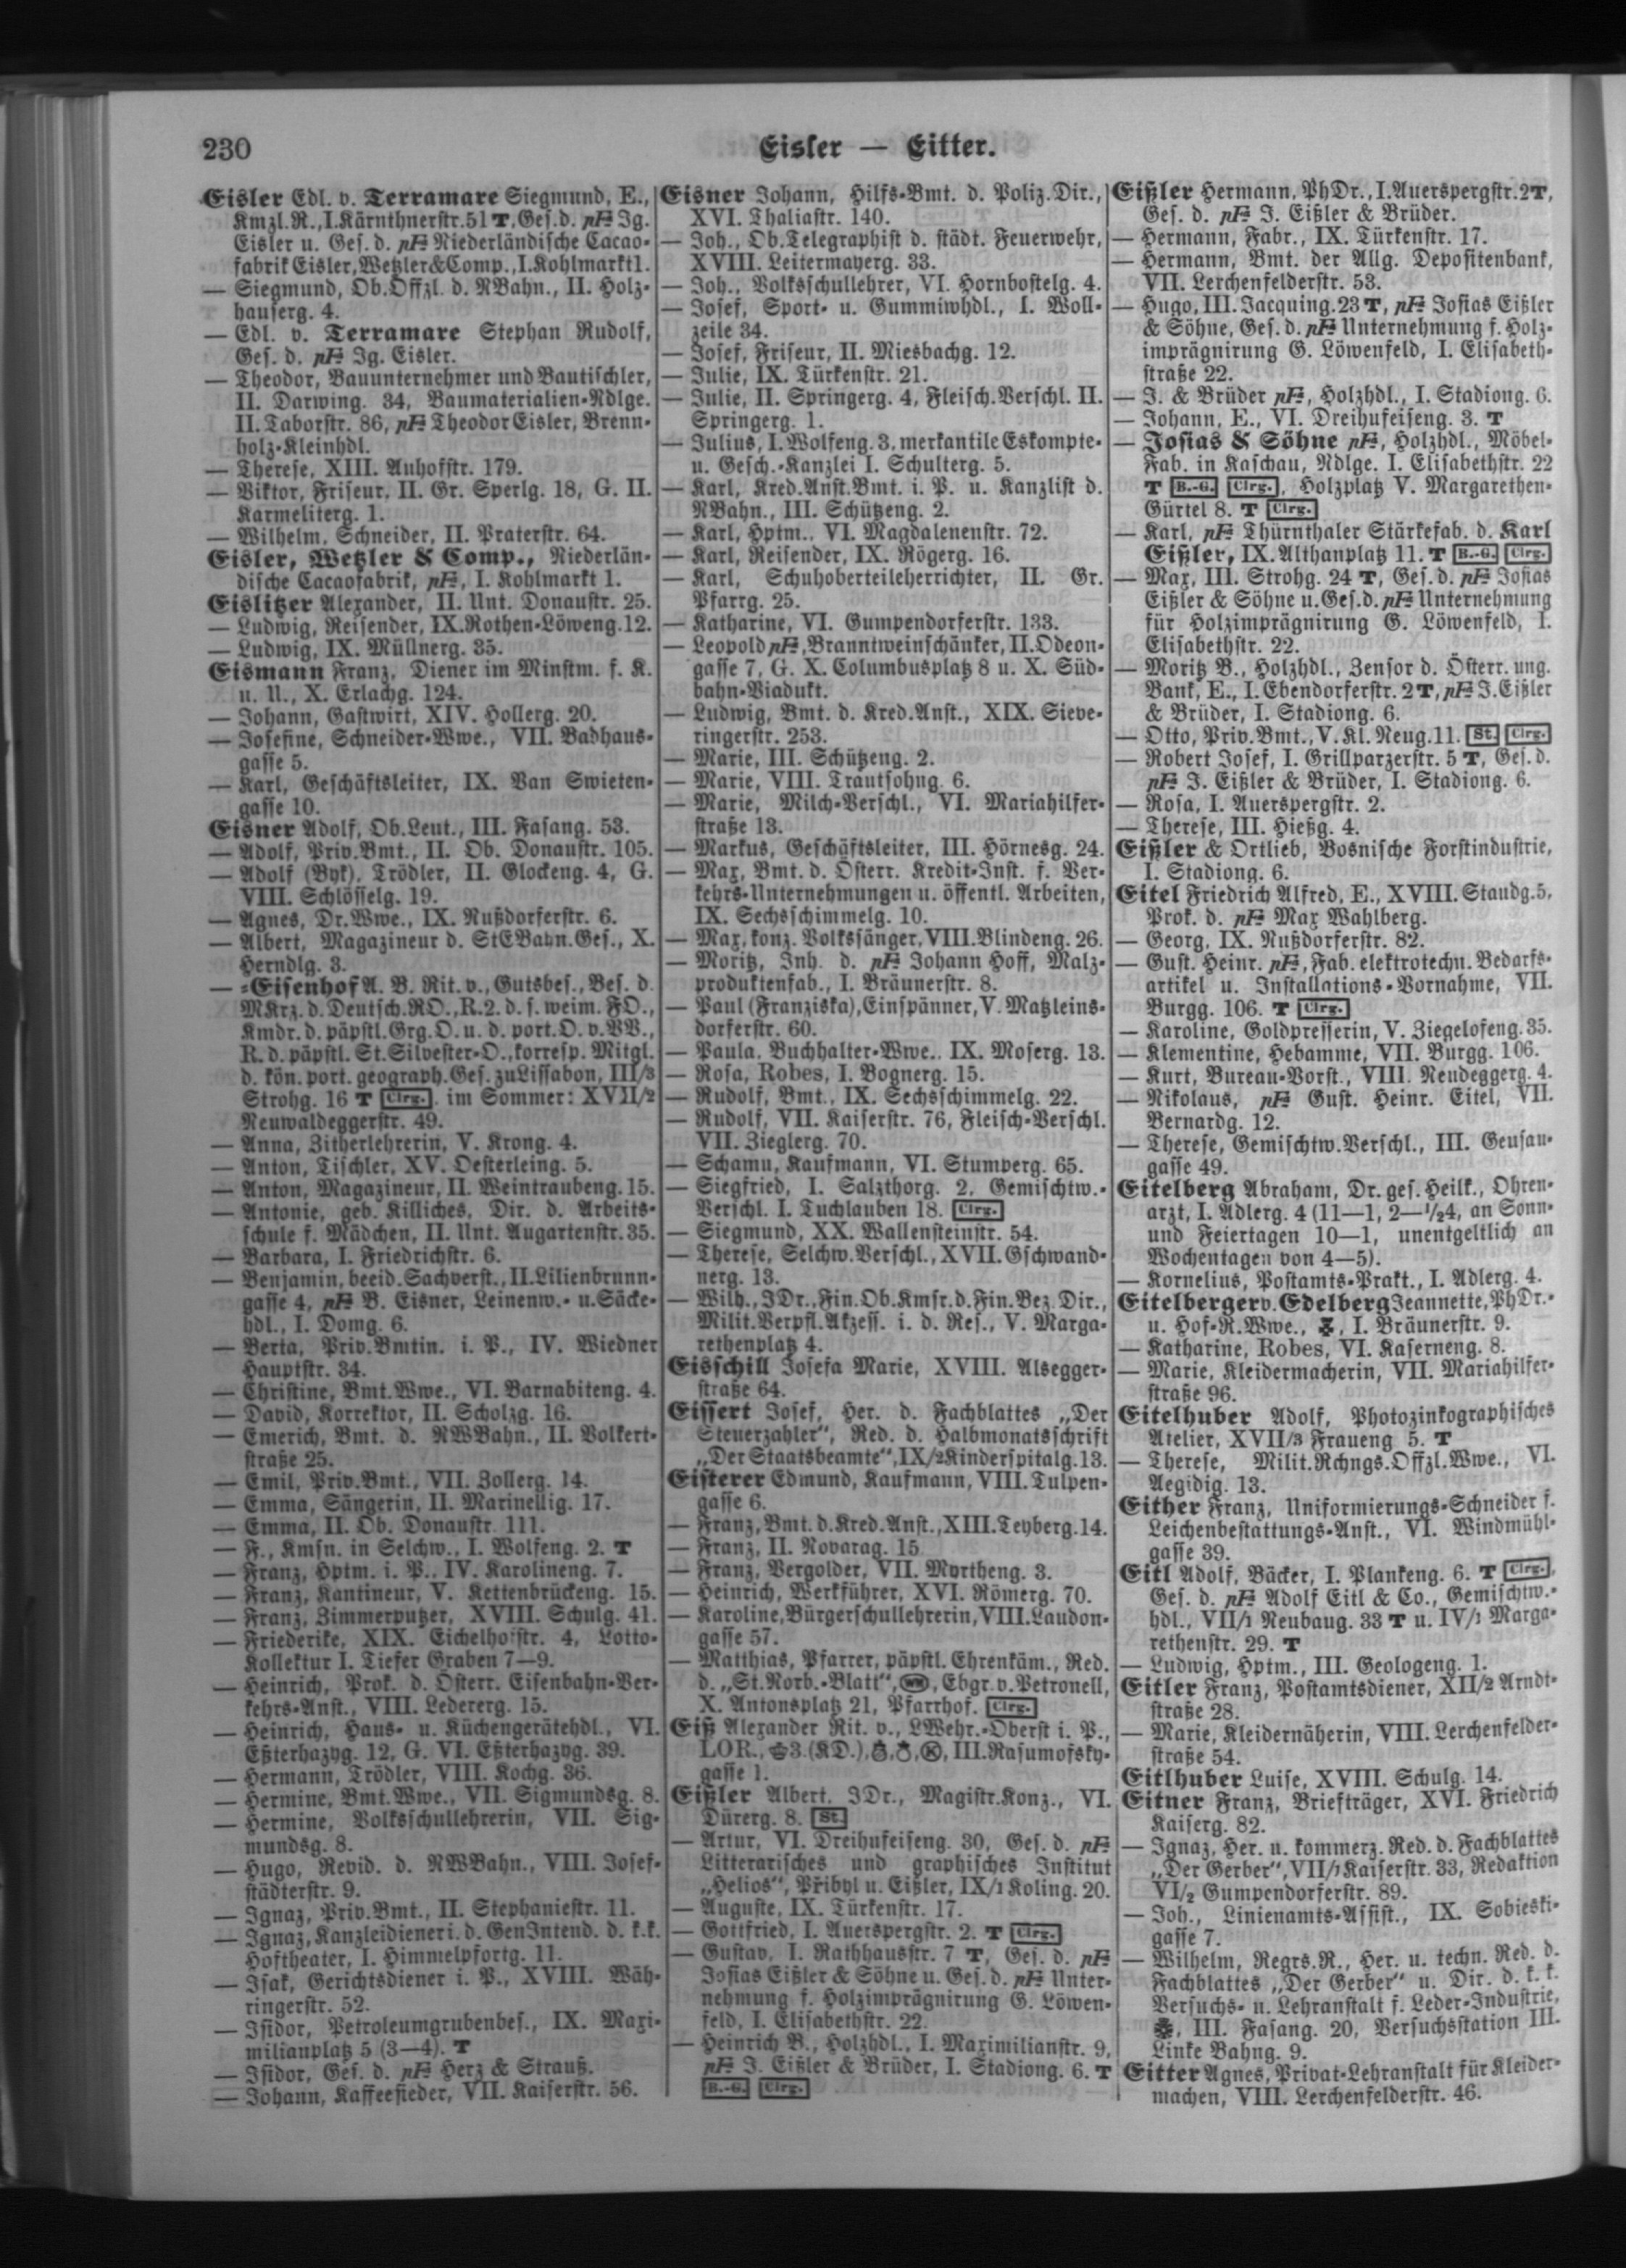 230
Eisler — Eitter.
Eisler Edl. v. Terramare Siegmund, E.,
Kmzl.R., I. Kärnthnerstr. 51 T, Ges. d. pF Jg.
Eisler u. Ges. d. pF Niederländische Cacao-
fabrik Eisler, Wetzler & Comp., I. Kohlmarkt 1.
— Siegmund, Ob.Offzl. d. NBahn., II. Holz-
hauserg. 4.
— Edl. v. Terramare Stephan Rudolf,
Ges. d. pF Ig. Eisler.
— Theodor, Bauunternehmer und Bautischler,
II. Darwing. 34, Baumaterialien-Ndlge.
II. Taborstr. 86, pF Theodor Eisler, Brenn-
holz-Kleinhdl.
— Therese, XIII. Auhofstr. 179.
— Viktor, Friseur, II. Gr. Sperlg. 18, G. II.
Karmeliterg. 1.
— Wilhelm, Schneider, II. Praterstr. 64.
Eisler, Wetzler & Comp., Niederlän-
dische Cacaofabrik, pF, I. Kohlmarkt 1.
Eislitzer Alexander, II. Unt. Donaustr. 25.
— Ludwig, Reisender, IX. Rothen-Löweng. 12.
— Ludwig, IX. Müllnerg. 35.
Eismann Franz, Diener im Minstm. f. K.
u. U., X. Erlachg. 124.
— Johann, Gastwirt, XIV. Hollerg. 20.
— Josefine, Schneider-Wwe., VII. Badhaus-
gasse 5.
— Karl, Geschäftsleiter, IX. Van Swieten-
gasse 10.
Eisner Adolf, Ob.Leut., III. Fasang. 53.
— Adolf, Priv.Bmt., II. Ob. Donaustr. 105.
— Adolf (Byk), Trödler, II. Glockeng. 4, G.
VIII. Schlösselg. 19.
— Agnes, Dr.Wwe., IX. Nußdorferstr. 6.
— Albert, Magazineur d. StEBahn.Ges., X.
Herndlg. 3.
— -Eisenhof A. B. Rit. v., Gutsbes., Bes. d.
MKrz. d. Deutsch.RO., R. 2. d. s. weim. FO.,
Kmdr. d. päpstl. Grg.O. u. d. port. O. v. VV.,
R. d. päpstl. St. Silvester-O., korresp. Mitgl.
d. kön. port. geograph. Ges. zu Lissabon, III/3
Strohg. 16 T Clrg. im Sommer: XVII/2
Neuwaldeggerstr. 49.
— Anna, Zitherlehrerin, V. Krong. 4.
— Anton, Tischler, XV. Oesterleing. 5.
— Anton, Magazineur, II. Weintraubeng. 15.
— Antonie, geb. Killiches, Dir. d. Arbeits-
schule f. Mädchen, II. Unt. Augartenstr. 35.
— Barbara, I. Friedrichstr. 6.
— Benjamin, beeid. Sachverst., II. Lilienbrunn-
gasse 4, pF B. Eisner, Leinenw.- u. Säcke-
hdl., I. Domg. 6.
— Berta, Priv.Bmtin. i. P., IV. Wiedner
Hauptstr. 34.
— Christine, Bmt.Wwe., VI. Barnabiteng. 4.
— David, Korrektor, II. Scholzg. 16.
— Emerich, Bmt. d. NWBahn., II. Volkert-
straße 25.
— Emil, Priv.Bmt., VII. Zollerg. 14.
— Emma, Sängerin, II. Marinellig. 17.
— Emma, II. Ob. Donaustr. 111.
— F., Kmsn. in Selchw., I. Wolfeng. 2. T
— Franz, Hptm. i. P., IV. Karolineng. 7.
— Franz, Kantineur, V. Kettenbrückeng. 15.
— Franz, Zimmerputzer, XVIII. Schulg. 41.
— Friederike, XIX. Eichelhofstr. 4, Lotto-
Kollektur I. Tiefer Graben 7—9.
— Heinrich, Prok. d. Österr. Eisenbahn-Ver-
kehrs-Anst., VIII. Ledererg. 15.
— Heinrich, Haus- u. Küchengerätehdl., VI.
Eßterhazyg. 12, G. VI. Eßterhazyg. 39.
— Hermann, Trödler, VIII. Kochg. 36.
— Hermine, Bmt.Wwe., VII. Sigmundsg. 8.
— Hermine, Volksschullehrerin, VII. Sig-
mundsg. 8.
— Hugo, Revid. d. NWBahn., VIII. Josef-
städterstr. 9.
— Ignaz, Priv.Bmt., II. Stephaniestr. 11.
— Ignaz, Kanzleidiener i. d. GenIntend. d. k.k.
Hoftheater, I. Himmelpfortg. 11.
— Isak, Gerichtsdiener i. P., XVIII. Wäh-
ringerstr. 52.
— Isidor, Petroleumgrubenbes., IX. Maxi-
milianplatz 5 (3—4). T
— Isidor, Ges. d. pF Herz & Strauß.
— Johann, Kaffeesieder, VII. Kaiserstr. 56.
Eisner Johann, Hilfs-Bmt. d. Poliz.Dir.,
XVI. Thaliastr. 140.
— Joh., Ob.Telegraphist d. städt. Feuerwehr,
XVIII. Leitermayerg. 33.
— Joh., Volksschullehrer, VI. Hornbostelg. 4.
— Josef, Sport- u. Gummiwhdl., I. Woll-
zeile 34.
— Josef, Friseur, II. Miesbachg. 12.
— Julie, IX. Türkenstr. 21.
— Julie, II. Springerg. 4, Fleisch.Verschl. II.
Springerg. 1.
— Julius, I. Wolfeng. 3, merkantile Eskompte-
u. Gesch.-Kanzlei I. Schulterg. 5.
— Karl, Kred.Anst.Bmt. i. P. u. Kanzlist d.
NBahn., III. Schützeng. 2.
— Karl, Hptm., VI. Magdalenenstr. 72.
— Karl, Reisender, IX. Rögerg. 16.
— Karl, Schuhoberteileherrichter, II. Gr.
Pfarrg. 25.
— Katharine, VI. Gumpendorferstr. 133.
— Leopold pF, Branntweinschänker, II. Odeon-
gasse 7, G. X. Columbusplatz 8 u. X. Süd-
bahn-Viadukt.
— Ludwig, Bmt. d. Kred.Anst., XIX. Sieve-
ringerstr. 253.
— Marie, III. Schützeng. 2.
— Marie, VIII. Trautsohng. 6.
— Marie, Milch-Verschl., VI. Mariahilfer-
straße 13.
— Markus, Geschäftsleiter, III. Hörnesg. 24.
— Max, Bmt. d. Österr. Kredit-Inst. f. Ver-
kehrs-Unternehmungen u. öffentl. Arbeiten,
IX. Sechsschimmelg. 10.
— Max, konz. Volkssänger, VIII. Blindeng. 26.
— Moritz, Inh. d. pF Johann Hoff, Malz-
produktenfab., I. Bräunerstr. 8.
— Paul (Franziska), Einspänner, V. Matzleins-
dorferstr. 60.
— Paula, Buchhalter-Wwe., IX. Moserg. 13.
— Rosa, Robes, I. Bognerg. 15.
— Rudolf, Bmt., IX. Sechsschimmelg. 22.
— Rudolf, VII. Kaiserstr. 76, Fleisch-Verschl.
VII. Zieglerg. 70.
— Schamu, Kaufmann, VI. Stumperg. 65.
— Siegfried, I. Salzthorg. 2, Gemischtw.-
Verschl. I. Tuchlauben 18. Clrg.
— Siegmund, XX. Wallensteinstr. 54.
— Therese, Selchw.Verschl., XVII. Gschwand-
nerg. 13.
— Wilh., JDr., Fin.Ob.Kmsr. d. Fin.Bez.Dir.,
Milit.Verpfl.Akzess. i. d. Res., V. Marga-
rethenplatz 4.
Eisschill Josefa Marie, XVIII. Alsegger-
straße 64.
Eissert Josef, Her. d. Fachblattes „Der
Steuerzahler“, Red. d. Halbmonatsschrift
„Der Staatsbeamte“, IX/2 Kinderspitalg. 13.
Eisterer Edmund, Kaufmann, VIII. Tulpen-
gasse 6.
— Franz, Bmt. d. Kred.Anst., XIII. Teyberg. 14.
— Franz, II. Novarag. 15
— Franz, Vergolder, VII. Myrtheng. 3.
— Heinrich, Werkführer, XVI. Römerg. 70.
— Karoline, Bürgerschullehrerin, VIII. Laudon-
gasse 57.
— Matthias, Pfarrer, päpstl. Ehrenkäm., Red.
d. „St. Norb.-Blatt“, Ebgr. v. Petronell,
X. Antonsplatz 21, Pfarrhof. Clrg.
Eiß Alexander Rit. v., LWehr.-Oberst i. P.,
LOR., 3. (KD.), K, III. Rasumofsky-
gasse 1.
Eißler Albert, JDr., Magistr.Konz., VI.
Dürerg. 8. St.
— Artur, VI. Dreihufeiseng. 30, Ges. d. pF
Litterarisches und graphisches Institut
„Helios“, Přibyl u. Eißler, IX/1 Koling. 20.
— Auguste, IX. Türkenstr. 17.
— Gottfried, I. Auerspergstr. 2. T Clrg.
— Gustav, I. Rathhausstr. 7 T, Ges. d. pF
Josias Eißler & Söhne u. Ges. d. pF Unter-
nehmung f. Holzimprägnirung G. Löwen-
feld, I. Elisabethstr. 22.
— Heinrich B., Holzhdl., I. Maximilianstr. 9,
pF J. Eißler & Brüder, I. Stadiong. 6. T
B.-G. Clrg.
Eißler Hermann, PhDr., I. Auerspergstr. 2 T,
Ges. d. pF J. Eißler & Brüder.
— Hermann, Fabr., IX. Türkenstr. 17.
— Hermann, Bmt. der Allg. Depositenbank,
VII. Lerchenfelderstr. 53.
— Hugo, III. Jacquing. 23 T, pF Josias Eißler
& Söhne, Ges. d. pF Unternehmung f. Holz-
imprägnirung G. Löwenfeld, I. Elisabeth-
straße 22.
— J. & Brüder pF, Holzhdl., I. Stadiong. 6.
— Johann, E., VI. Dreihufeiseng. 3. T
— Josias & Söhne pF, Holzhdl., Möbel-
Fab. in Kaschau, Ndlge. I. Elisabethstr. 22
T B.-G. Clrg., Holzplatz V. Margarethen-
Gürtel 8. T Clrg.
— Karl, pF Thürnthaler Stärkefab. d. Karl
Eißler, IX. Althanplatz 11. T B.-G. Clrg.
— Max, III. Strohg. 24 T, Ges. d. pF Josias
Eißler & Söhne u. Ges. d. pF Unternehmung
für Holzimprägnirung G. Löwenfeld, I.
Elisabethstr. 22.
— Moritz B., Holzhdl., Zensor d. Österr. ung.
Bank, E., I. Ebendorferstr. 2 T, pF J. Eißler
& Brüder, I. Stadiong. 6.
— Otto, Priv.Bmt., V. Kl. Neug. 11. St. Clrg.
— Robert Josef, I. Grillparzerstr. 5 T, Ges. d.
pF J. Eißler & Brüder, I. Stadiong. 6.
— Rosa, I. Auerspergstr. 2.
— Therese, III. Hießg. 4.
Eißler & Ortlieb, Bosnische Forstindustrie,
I. Stadiong. 6.
Eitel Friedrich Alfred, E., XVIII. Staudg. 5,
Prok. d. pF Max Wahlberg.
— Georg, IX. Nußdorferstr. 82.
— Gust. Heinr. pF, Fab. elektrotechn. Bedarfs-
artikel u. Installations-Vornahme, VII.
Burgg. 106. T Clrg.
— Karoline, Goldpresserin, V. Ziegelofeng. 35.
— Klementine, Hebamme, VII. Burgg. 106.
— Kurt, Bureau-Vorst., VIII. Neudeggerg. 4.
— Nikolaus, pF Gust. Heinr. Eitel, VII.
Bernardg. 12.
— Therese, Gemischtw.Verschl., III. Geusau-
gasse 49.
Eitelberg Abraham, Dr. ges. Heilk., Ohren-
arzt, I. Adlerg. 4 (11—1, 2—1/24, an Sonn-
und Feiertagen 10—1, unentgeltlich an
Wochentagen von 4—5).
— Kornelius, Postamts-Prakt., I. Adlerg. 4.
Eitelberger v. Edelberg Jeannette, PhDr.-
u. Hof-R.Wwe., I. Bräunerstr. 9.
— Katharine, Robes, VI. Kaserneng. 8.
— Marie, Kleidermacherin, VII. Mariahilfer-
straße 96.
Eitelhuber Adolf, Photozinkographisches
Atelier, XVII/3 Fraueng 5. T
— Therese, Milit.Rchngs.Offzl.Wwe., VI.
Aegidig. 13.
Either Franz, Uniformierungs-Schneider f.
Leichenbestattungs-Anst., VI. Windmühl-
gasse 39.
Eitl Adolf, Bäcker, I. Plankeng. 6. T Clrg.,
Ges. d. pF Adolf Eitl & Co., Gemischtw.-
hdl., VII/1 Neubaug. 33 T u. IV/1 Marga-
rethenstr. 29. T
— Ludwig, Hptm., III. Geologeng. 1.
Eitler Franz, Postamtsdiener, XII/2 Arndt-
straße 28.
— Marie, Kleidernäherin, VIII. Lerchenfelder-
straße 54.
Eitlhuber Luise, XVIII. Schulg. 14.
Eitner Franz, Briefträger, XVI. Friedrich
Kaiserg. 82.
— Ignaz, Her. u. kommerz. Red. d. Fachblattes
„Der Gerber“, VII/1 Kaiserstr. 33, Redaktion
VI/2 Gumpendorferstr. 89.
— Joh., Linienamts-Assist., IX. Sobieski-
gasse 7.
— Wilhelm, Regrs.R., Her. u. techn. Red. d.
Fachblattes „Der Gerber“ u. Dir. d. k. k.
Versuchs- u. Lehranstalt f. Leder-Industrie,
III. Fasang. 20, Versuchsstation III.
Linke Bahng. 9.
Eitter Agnes, Privat-Lehranstalt für Kleider-
machen, VIII. Lerchenfelderstr. 46.